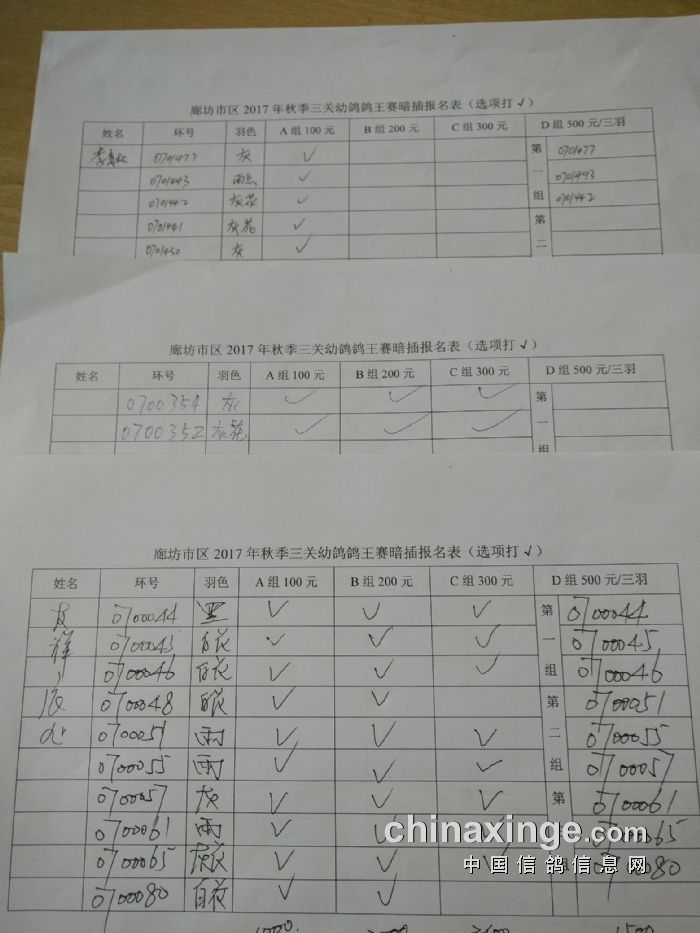 廊坊市区 2017 年秋季三关幼鸽鸽王赛暗插报名表（选项打 √）
姓名 环号 羽色 A 组 100 元 B 组 200 元 C 组 300 元 D 组 500 元/三羽
0701477 灰 ✓ 第 0701477
0701443 雨点 ✓ 一 0701443
0701442 灰花 ✓ 组 0701442
0701441 灰花 ✓ 第
0701450 灰 ✓ 二
廊坊市区 2017 年秋季三关幼鸽鸽王赛暗插报名表（选项打 √）
姓名 环号 羽色 A 组 100 元 B 组 200 元 C 组 300 元 D 组 500 元/三羽
0700354 灰 ✓ ✓ ✓ 第
0700352 灰花 ✓ ✓ ✓ 一
组
廊坊市区 2017 年秋季三关幼鸽鸽王赛暗插报名表（选项打 √）
姓名 环号 羽色 A 组 100 元 B 组 200 元 C 组 300 元 D 组 500 元/三羽
0700044 ✓ ✓ ✓ 第 0700044
祥 0700045 白花 ✓ ✓ ✓ 一 0700045
0700046 白花 ✓ ✓ ✓ 组 0700046
0700048 ✓ ✓ 第 0700051
0700051 雨 ✓ ✓ ✓ 二 0700055
0700055 雨 ✓ ✓ ✓ 组 0700057
0700057 灰 ✓ ✓ ✓ 第 0700061
0700061 雨 ✓ ✓ ✓ 0700065
0700065 灰花 ✓ ✓ ✓ 0700080
0700080 白花 ✓ ✓
chinaxinge.com
中国信鸽信息网